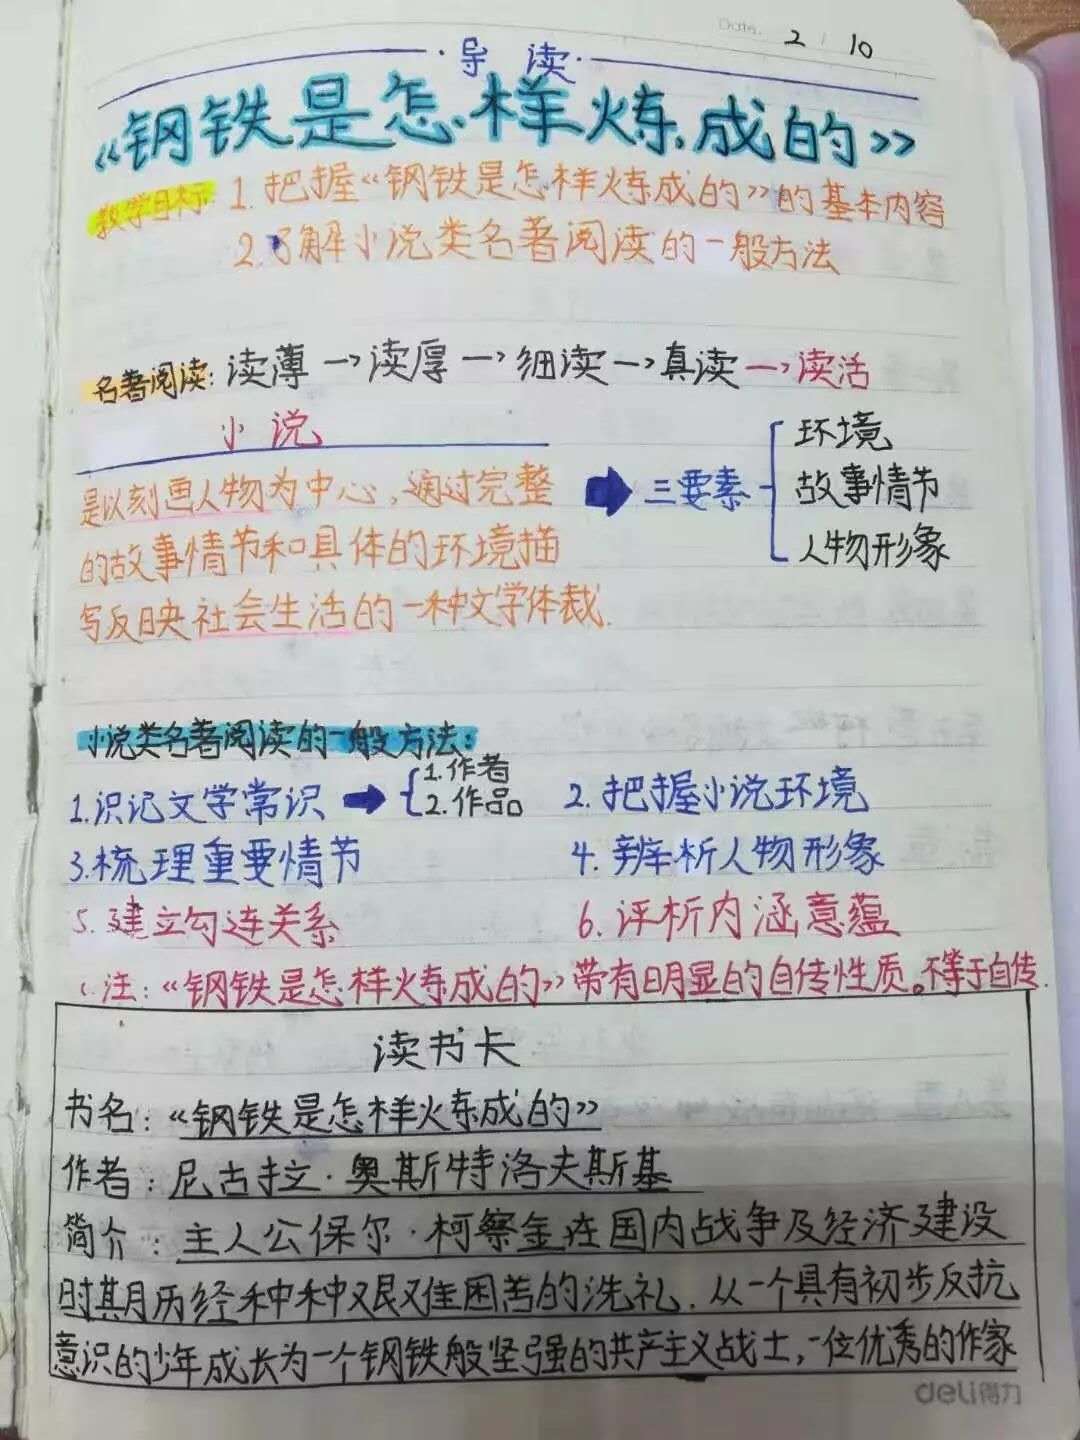 Date. 2 / 10
导读
《钢铁是怎样炼成的》
教学目标 1.把握《钢铁是怎样炼成的》的基本内容
2.了解小说类名著阅读的一般方法
名著阅读:读薄→读厚→细读→真读→读活
小说
是以刻画人物为中心,通过完整
的故事情节和具体的环境描
写反映社会生活的一种文学体裁.
三要素
环境
故事情节
人物形象
小说类名著阅读的一般方法:
1.识记文学常识
1.作者
2.作品
2.把握小说环境
3.梳理重要情节
4.辨析人物形象
5.建立勾连关系
6.评析内涵意蕴
(注:《钢铁是怎样炼成的》带有明显的自传性质。不等于自传.
读书卡
书名:《钢铁是怎样炼成的》
作者:尼古拉·奥斯特洛夫斯基
简介:主人公保尔·柯察金在国内战争及经济建设
时期历经种种艰难困苦的洗礼.从一个具有初步反抗
意识的少年成长为一个钢铁般坚强的共产主义战士,一位优秀的作家
deli得力